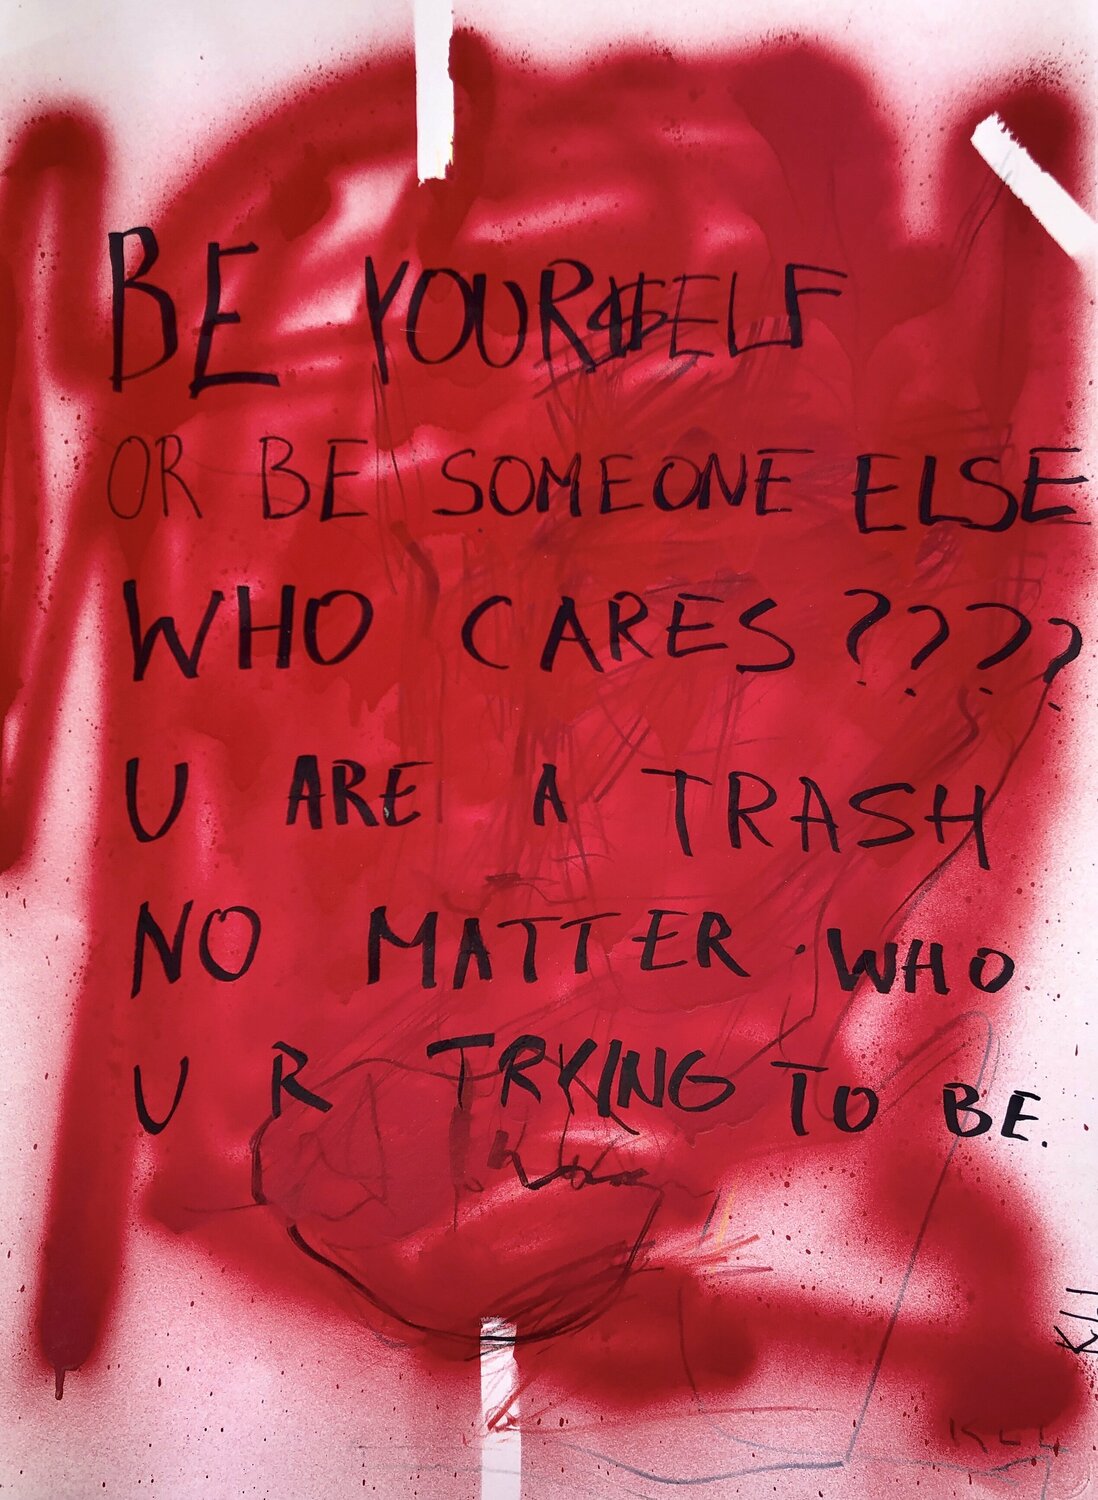 BE YOURSELF
OR BE SOMEONE ELSE
WHO CARES ????
U ARE A TRASH
NO MATTER WHO
U R TRYING TO BE.